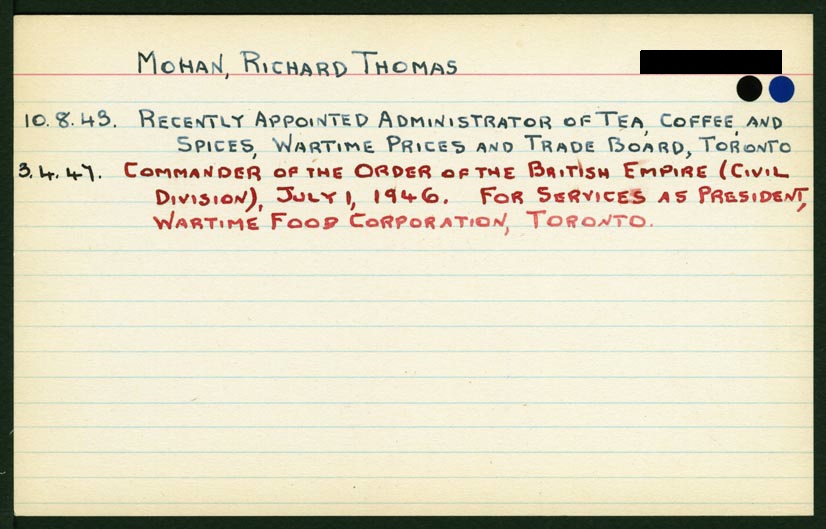 MOHAN, RICHARD THOMAS
10.8.43. RECENTLY APPOINTED ADMINISTRATOR OF TEA, COFFEE, AND
SPICES, WARTIME PRICES AND TRADE BOARD, TORONTO
3.4.47. COMMANDER OF THE ORDER OF THE BRITISH EMPIRE (CIVIL
DIVISION), JULY 1, 1946. FOR SERVICES AS PRESIDENT,
WARTIME FOOD CORPORATION, TORONTO.